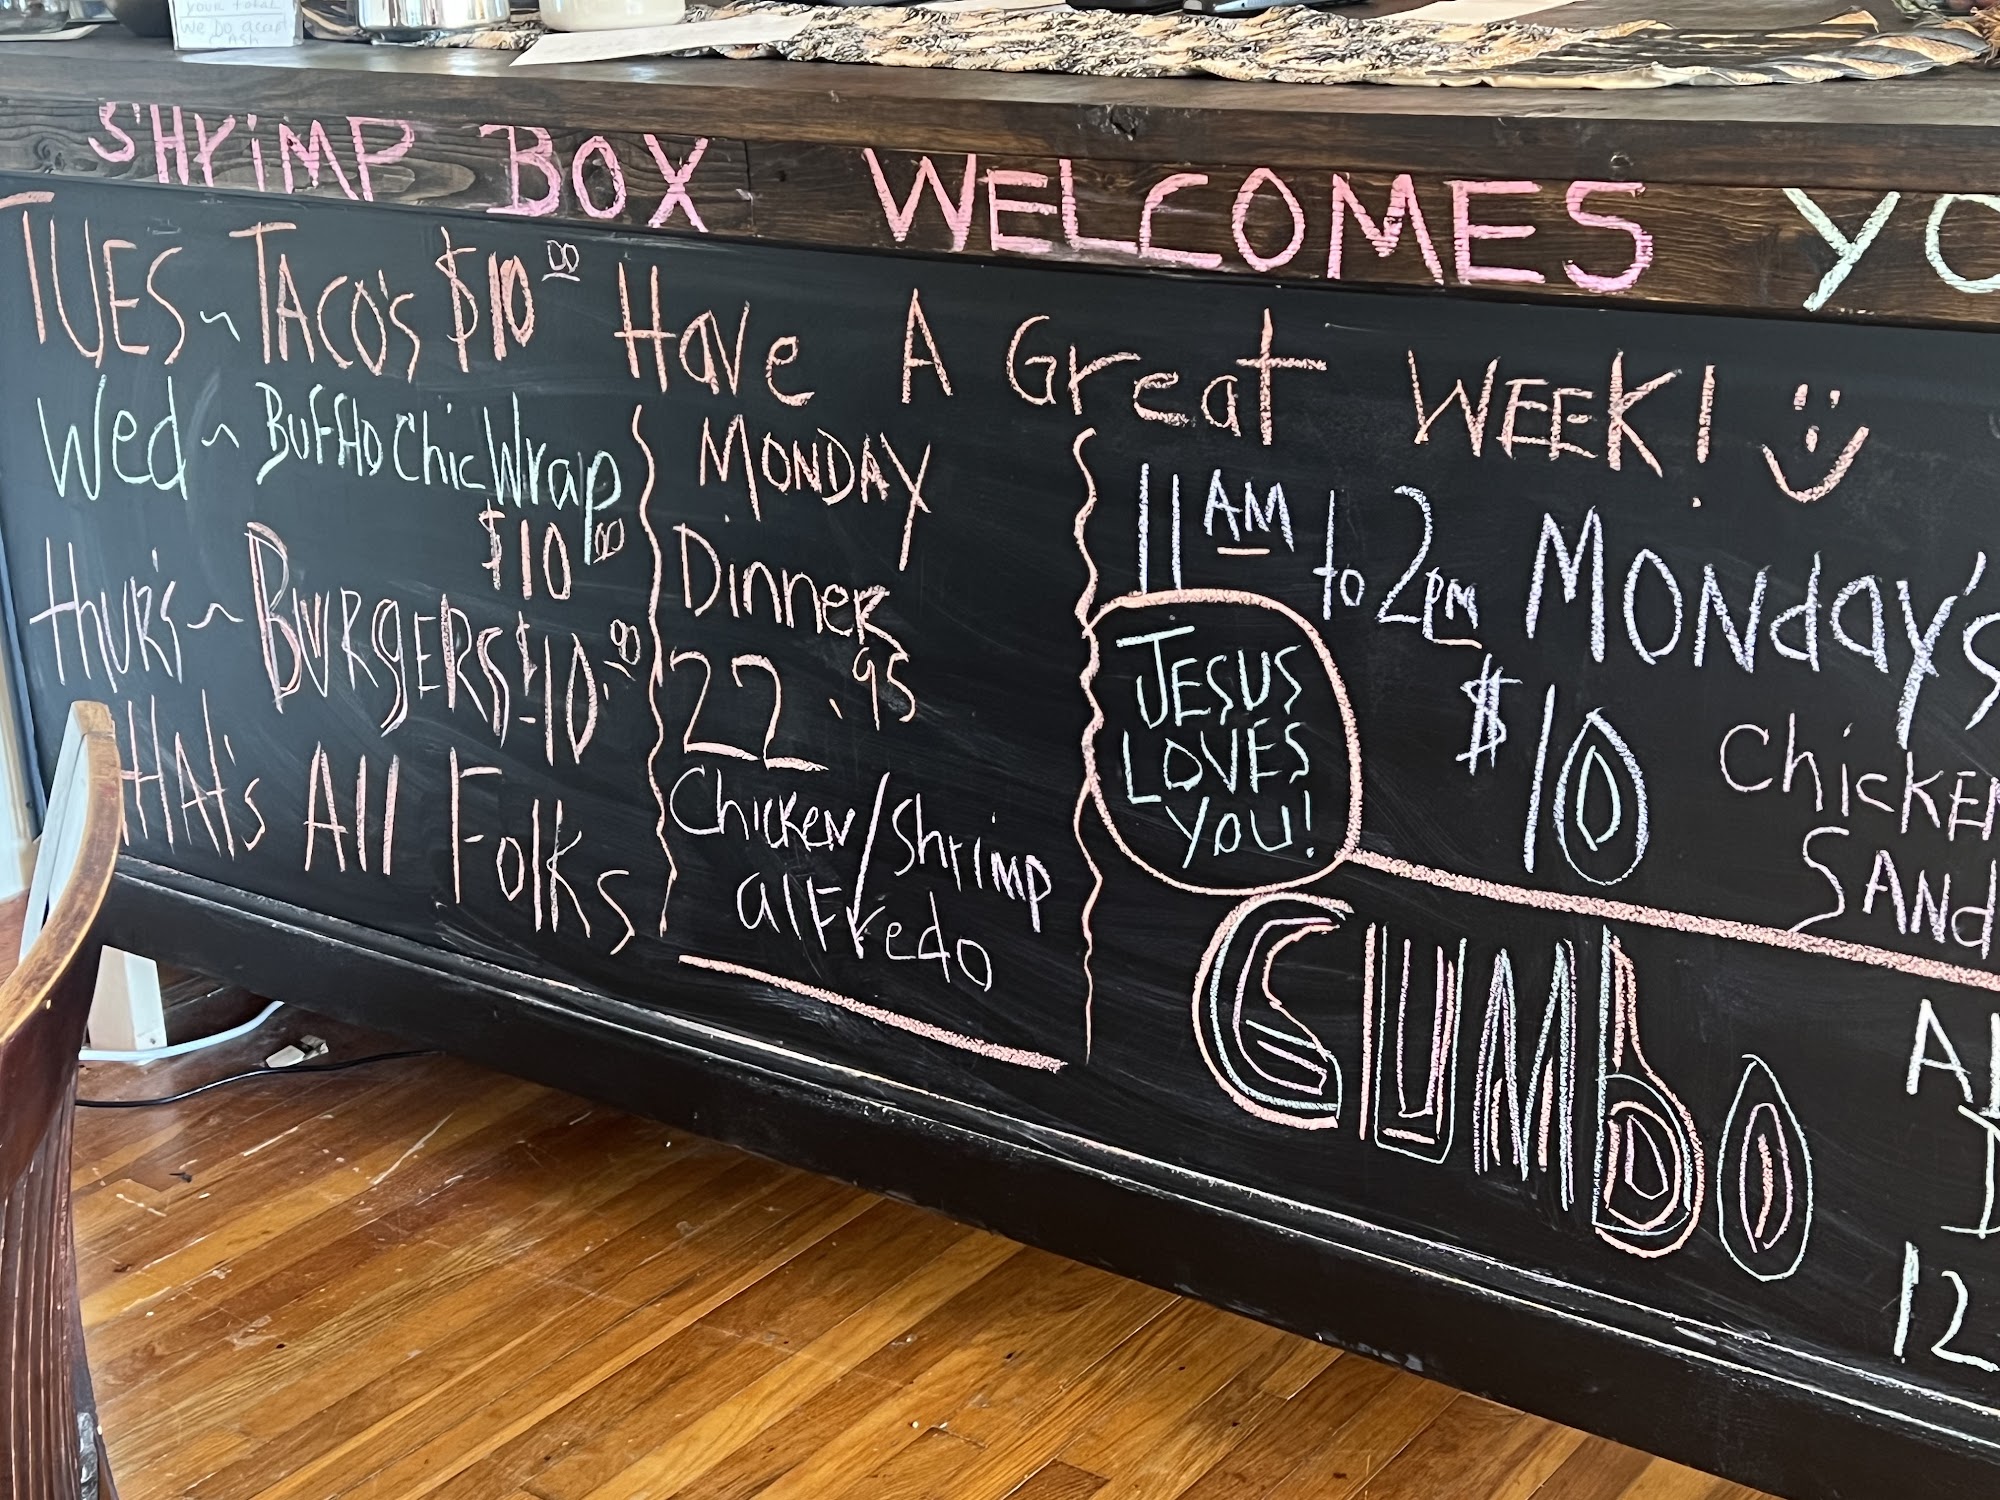 your total
We Do accept
CASH
S'HrimP BOX WELCOMES YO
TUES~TACO'S $10.00
Have A Great WEEK!
Wed~BUFFALO Chic Wrap
$10.00
tHUR'S~BURgERS $10.00
tHAt's All Folks
MONDAY
Dinner
22.95
Chicken/Shrimp
alFredo
11AM to 2pm MONday's
$10 Chicken
SANd
JESUS
LOVES
YOU!
GUMbO
12